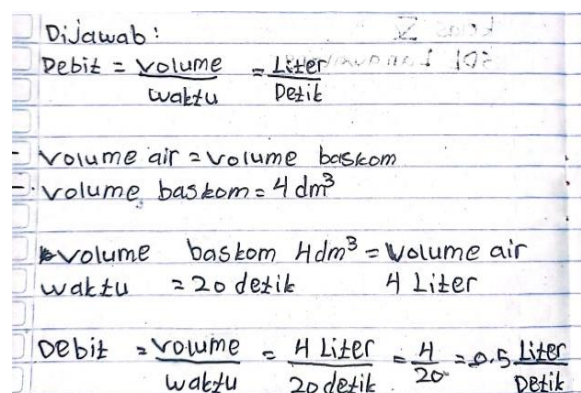 Dijawab:
Debit = Volume/Waktu = Liter/Detik
- Volume air = Volume baskom
- Volume baskom = 4 dm³
Volume baskom 4 dm³ = Volume air
Waktu = 20 detik 4 Liter
Debit = Volume/Waktu = 4 Liter/20 detik = 4/20 = 0.5 Liter/Detik